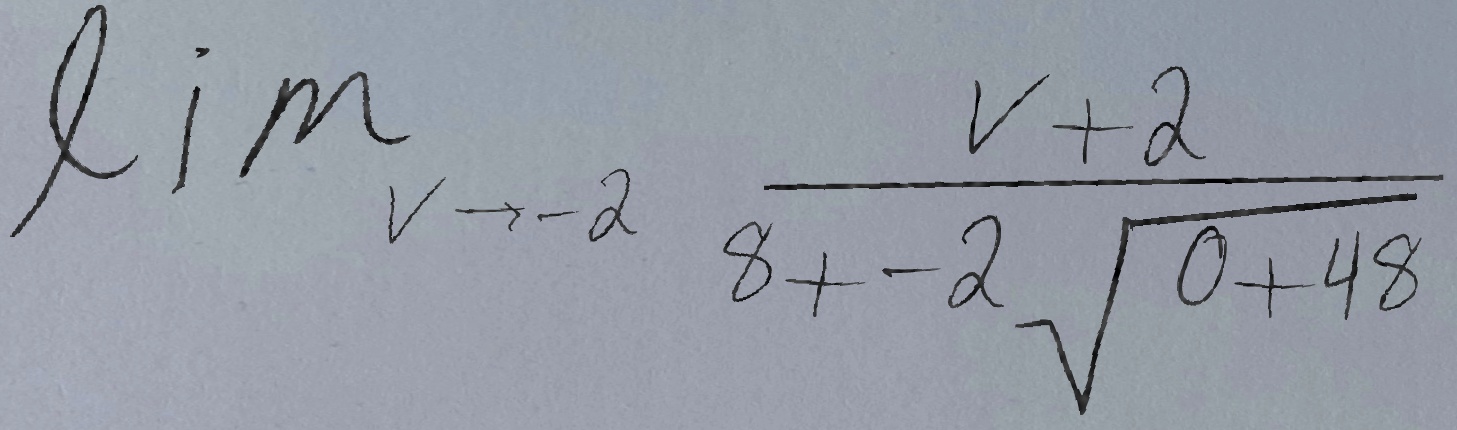 lim v→-2 (v+2)/(8+-2√(0+48))